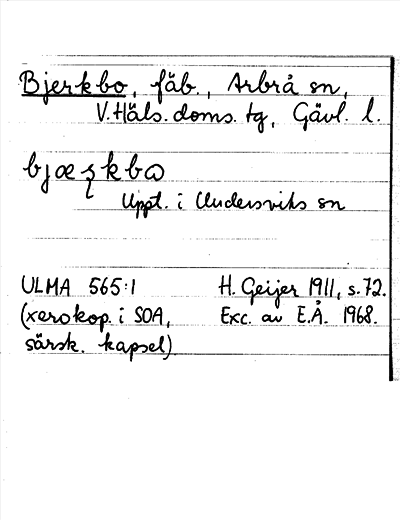 Bjerkbo, fäb., Arbrå sn,
V. Häls. doms. tg, Gävl. l.
Uppt. i Undersviks sn
ULMA 565:1 H. Geijer 1911, s. 72.
(xerokop. i SOA, Exc. av E.Å. 1968.
särsk. kapsel)